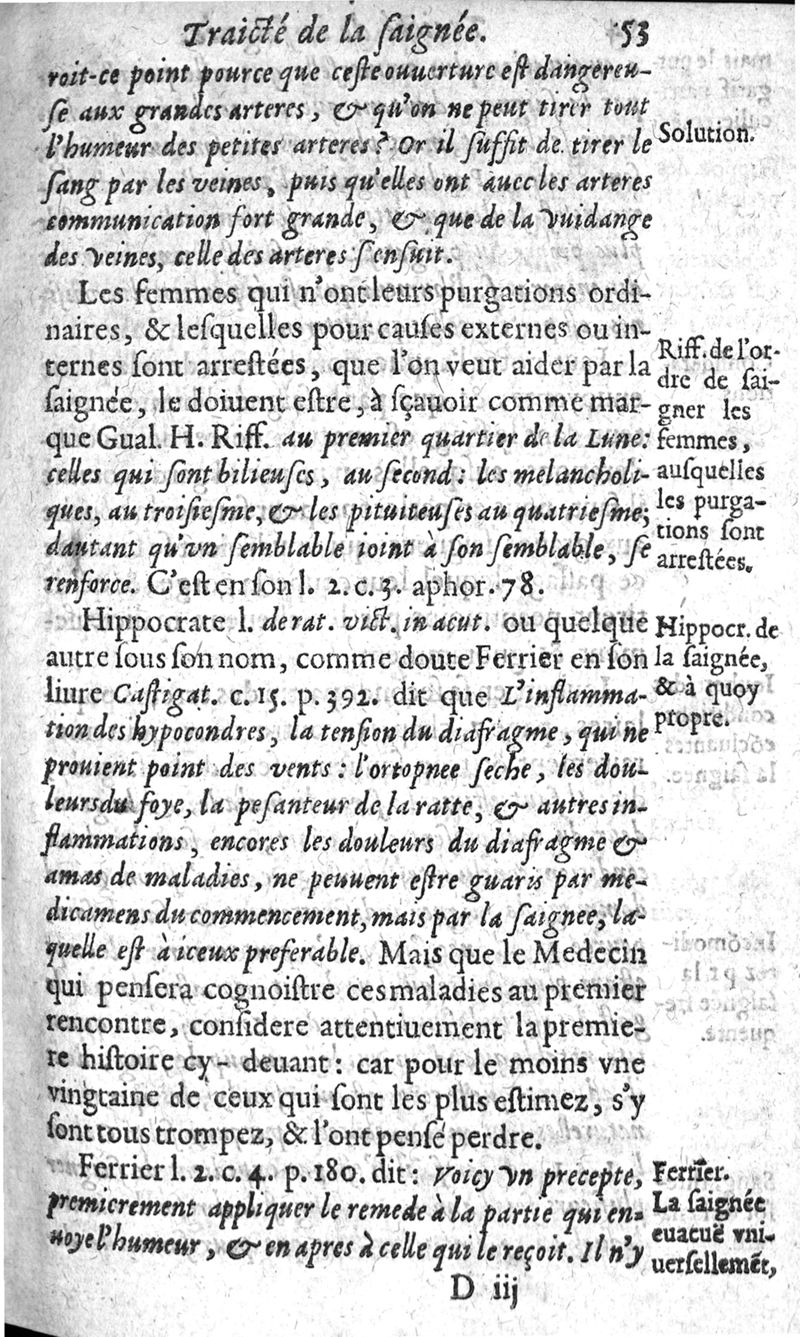 Traicté de la ſaignée. 53
roit-ce point pource que ceſte ouuerture eſt dangereu-
ſe aux grandes arteres, & qu'on ne peut tirer tout
l'humeur des petites arteres? Or il ſuffit de tirer le
ſang par les veines, puis qu'elles ont auec les arteres
communication fort grande, & que de la vuidange
des veines, celle des arteres s'enſuit.
Solution.
Les femmes qui n'ont leurs purgations ordi-
naires, & leſquelles pour cauſes externes ou in-
ternes ſont arreſtées, que l'on veut aider par la
ſaignée, le doiuent eſtre, à ſçauoir comme mar-
que Gual. H. Riff. au premier quartier de la Lune:
celles qui ſont bilieuſes, au ſecond: les melancholi-
ques, au troiſieſme, & les pituiteuſes au quatrieſme;
dautant qu'vn ſemblable ioint à ſon ſemblable, ſe
renforce. C'eſt en ſon l. 2. c. 3. aphor. 78.
Riff. de l'or-
dre de ſai-
gner les
femmes,
auſquelles
les purga-
tions ſont
arreſtées.
Hippocrate l. de rat. vict. in acut. ou quelque
autre ſous ſon nom, comme doute Ferrier en ſon
liure Caſtigat. c. 15. p. 392. dit que L'inflamma-
tion des hypocondres, la tenſion du diafragme, qui ne
prouient point des vents: l'ortopnee ſeche, les dou-
leurs du foye, la peſanteur de la ratte, & autres in-
flammations, encores les douleurs du diafragme &
amas de maladies, ne peuuent eſtre guaris par me-
dicamens du commencement, mais par la ſaignee, la-
quelle eſt à iceux preferable. Mais que le Medecin
qui penſera cognoiſtre ces maladies au premier
rencontre, conſidere attentiuement la premie-
re hiſtoire cy-deuant: car pour le moins vne
vingtaine de ceux qui ſont les plus eſtimez, s'y
ſont tous trompez, & l'ont penſé perdre.
Hippocr. de
la ſaignée,
& à quoy
propre.
Ferrier l. 2. c. 4. p. 180. dit: Voicy vn precepte,
premierement appliquer le remede à la partie qui en-
uoye l'humeur, & en apres à celle qui le reçoit. Il n'y
Ferrier.
La ſaignée
euacuë vni-
uerſellemēt,
D iij